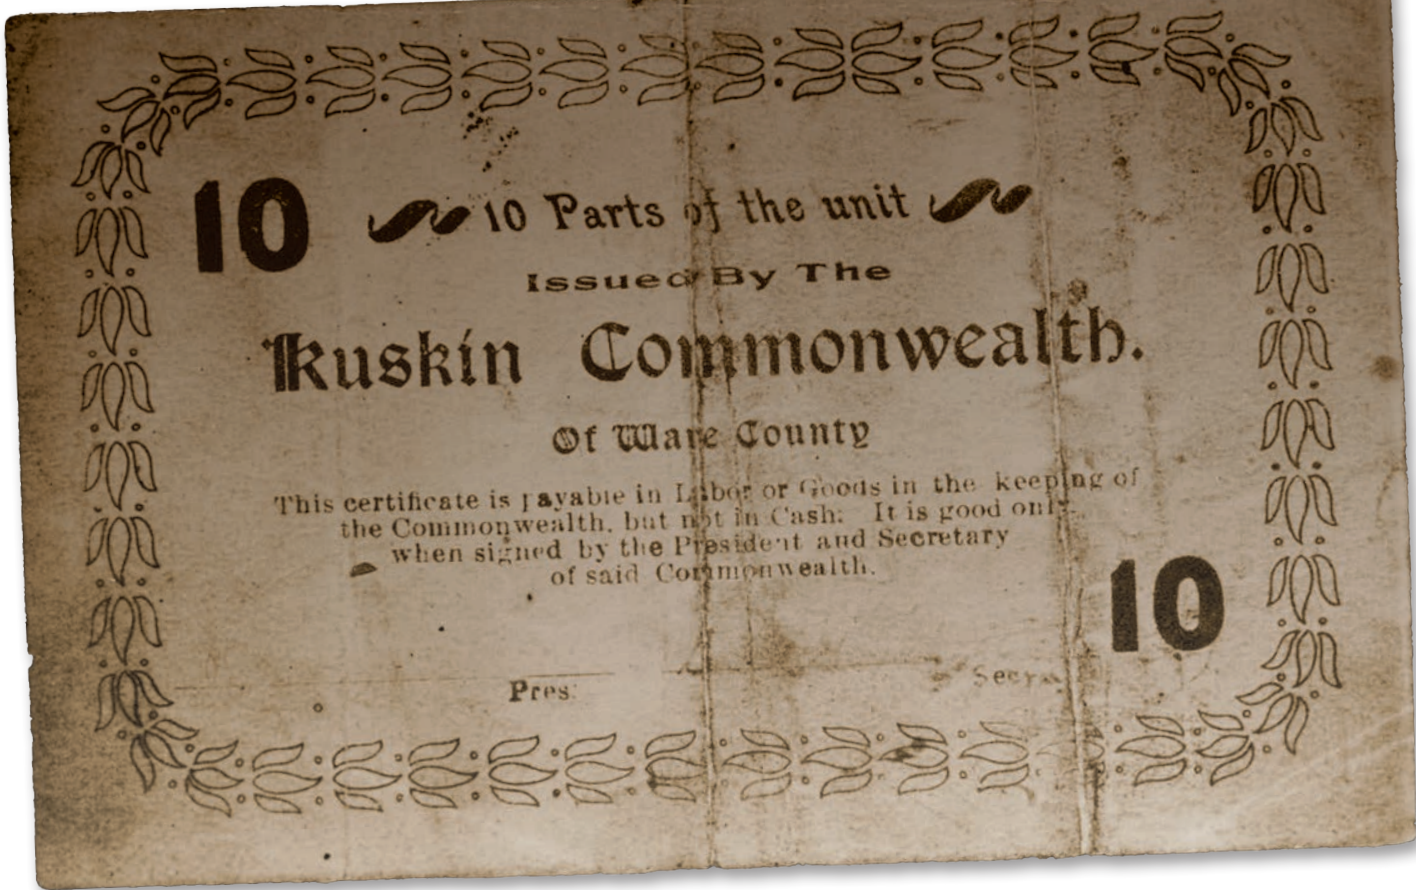 10 10 Parts of the unit
Issued By The
Ruskin Commonwealth.
Of Ware County
This certificate is payable in Labor or Goods in the keeping of
the Commonwealth, but not in Cash. It is good only
when signed by the President and Secretary
of said Commonwealth.
10
Pres. Secy.